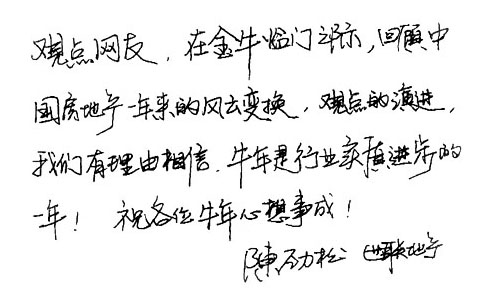 观点网友，在金牛临门之际，回顾中
国房地产一年来的风云变换，观点的演进，
我们有理由相信，牛年是行业求真进步的
一年！祝各位牛年心想事成！
陈劲松 世联地产